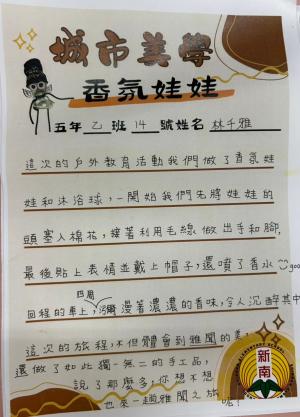 城市美學
香氛娃娃
五年乙班14號姓名林千雅
這次的戶外教育活動我們做了香氛娃
娃和沐浴球,一開始我們先將娃娃的
頭塞入棉花,接著利用毛線做出手和腳,
最後貼上表情並戴上帽子,還噴了香水 good
回程的車上,四周瀰漫著濃濃的香味,令人沉醉其中
這次的旅程,不但體會到雅聞的美,
還做了如此獨一無二的手工品,
說了那麼多,你想不想
也來一趟雅聞之旅呢?
ELEMENTARY SCHOOL
新南